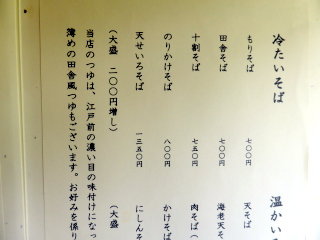 冷たいそば
もりそば 七〇〇円
田舎そば 七〇〇円
十割そば 七五〇円
のりかけそば 八〇〇円
天せいろそば 一三五〇円
(大盛 二〇〇円増し)
当店のつゆは、江戸前の濃い目の味付けになっ
薄めの田舎風つゆもございます。お好みを係り
温かい
天そば
海老天そ
肉そば(
かけそば
にしんそ
(大盛